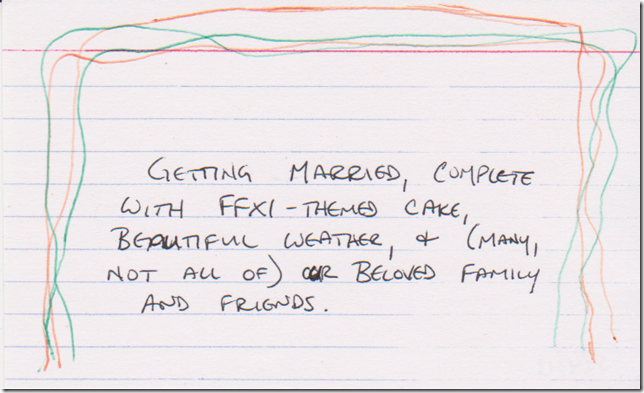 GETTING MARRIED, COMPLETE
WITH FFXI-THEMED CAKE,
BEAUTIFUL WEATHER, & (MANY,
NOT ALL OF) OUR BELOVED FAMILY
AND FRIENDS.